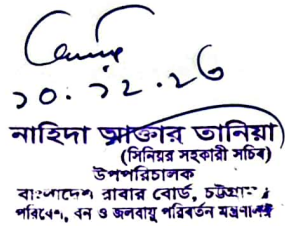 ১০.১২.২৩
নাহিদা আক্তার তানিয়া
(সিনিয়র সহকারী সচিব)
উপপরিচালক
বাংলাদেশ রাবার বোর্ড, চট্টগ্রাম
পরিবেশ, বন ও জলবায়ু পরিবর্তন মন্ত্রণালয়